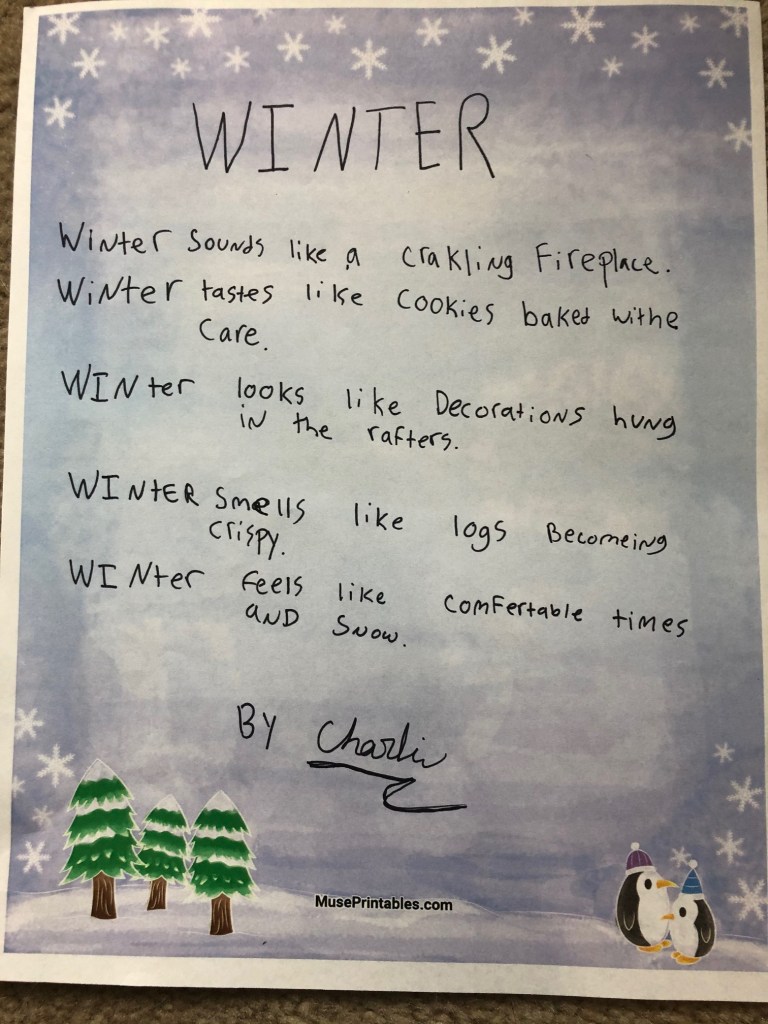 WINTER
Winter Sounds like a crakling Fireplace.
Winter tastes like cookies baked withe
Care.
WINter looks like Decorations hung
in the rafters.
WINtER smells like logs Becomeing
crispy.
WINter Feels like comFertable times
aND Snow.
BY Charlie
MusePrintables.com